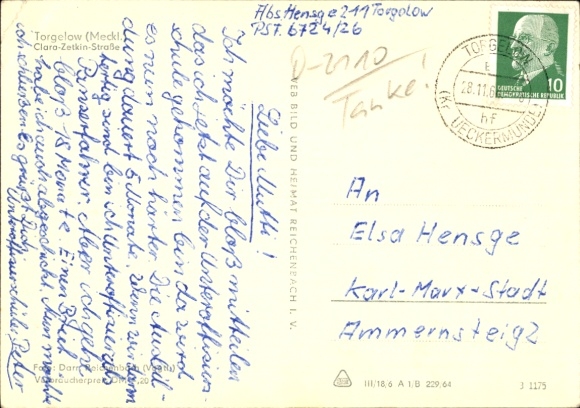 Torgelow (Meckl.)
Clara-Zetkin-Straße
Abs Hensge 211 Torgelow
PSF. 6724/26
D-2110
Tanke!
TORGELOW
28.11.6
hF
(Kr. UECKERMÜNDE)
DEUTSCHE
DEMOKRATISCHE REPUBLIK
10
Liebe Mutti!
Ich möchte Dir bloß mitteilen
das ich jetzt auf der Unteroffizier-
schule gekommen bin da wird
es nun noch härter. Die Ausbil-
dung dauert 5 Monate. Wenn wir dann
fertig sind bin ich Unteroffizier als
Panzerfahrer. Aber ich gehe
bloß 18 Monate. Einen Brief
habe ich auch abgeschickt. Nun möchte
ich schließen es grüßt Dich
Unteroffiziersschüler Peter
VEB BILD UND HEIMAT REICHENBACH I. V.
An
Elsa Hensge
Karl-Marx-Stadt
Ammernsteig 2
Foto: Darr, Reichenbach (Vogtl.)
Verbraucherpreis DM 0,20
III/18,6 A 1/B 229,64
3 1175